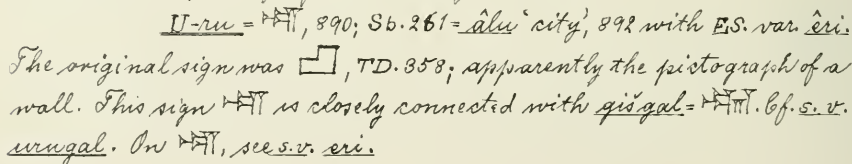 U-ru = 𒌷, 890; Sb. 261 = âlu ‘city’, 892 with ES. var. êri.
The original sign was , TD. 358; apparently the pictograph of a
wall. This sign 𒌷 is closely connected with gišgal = . Cf. s. v.
urugal. On 𒌷, see s.v. eri.